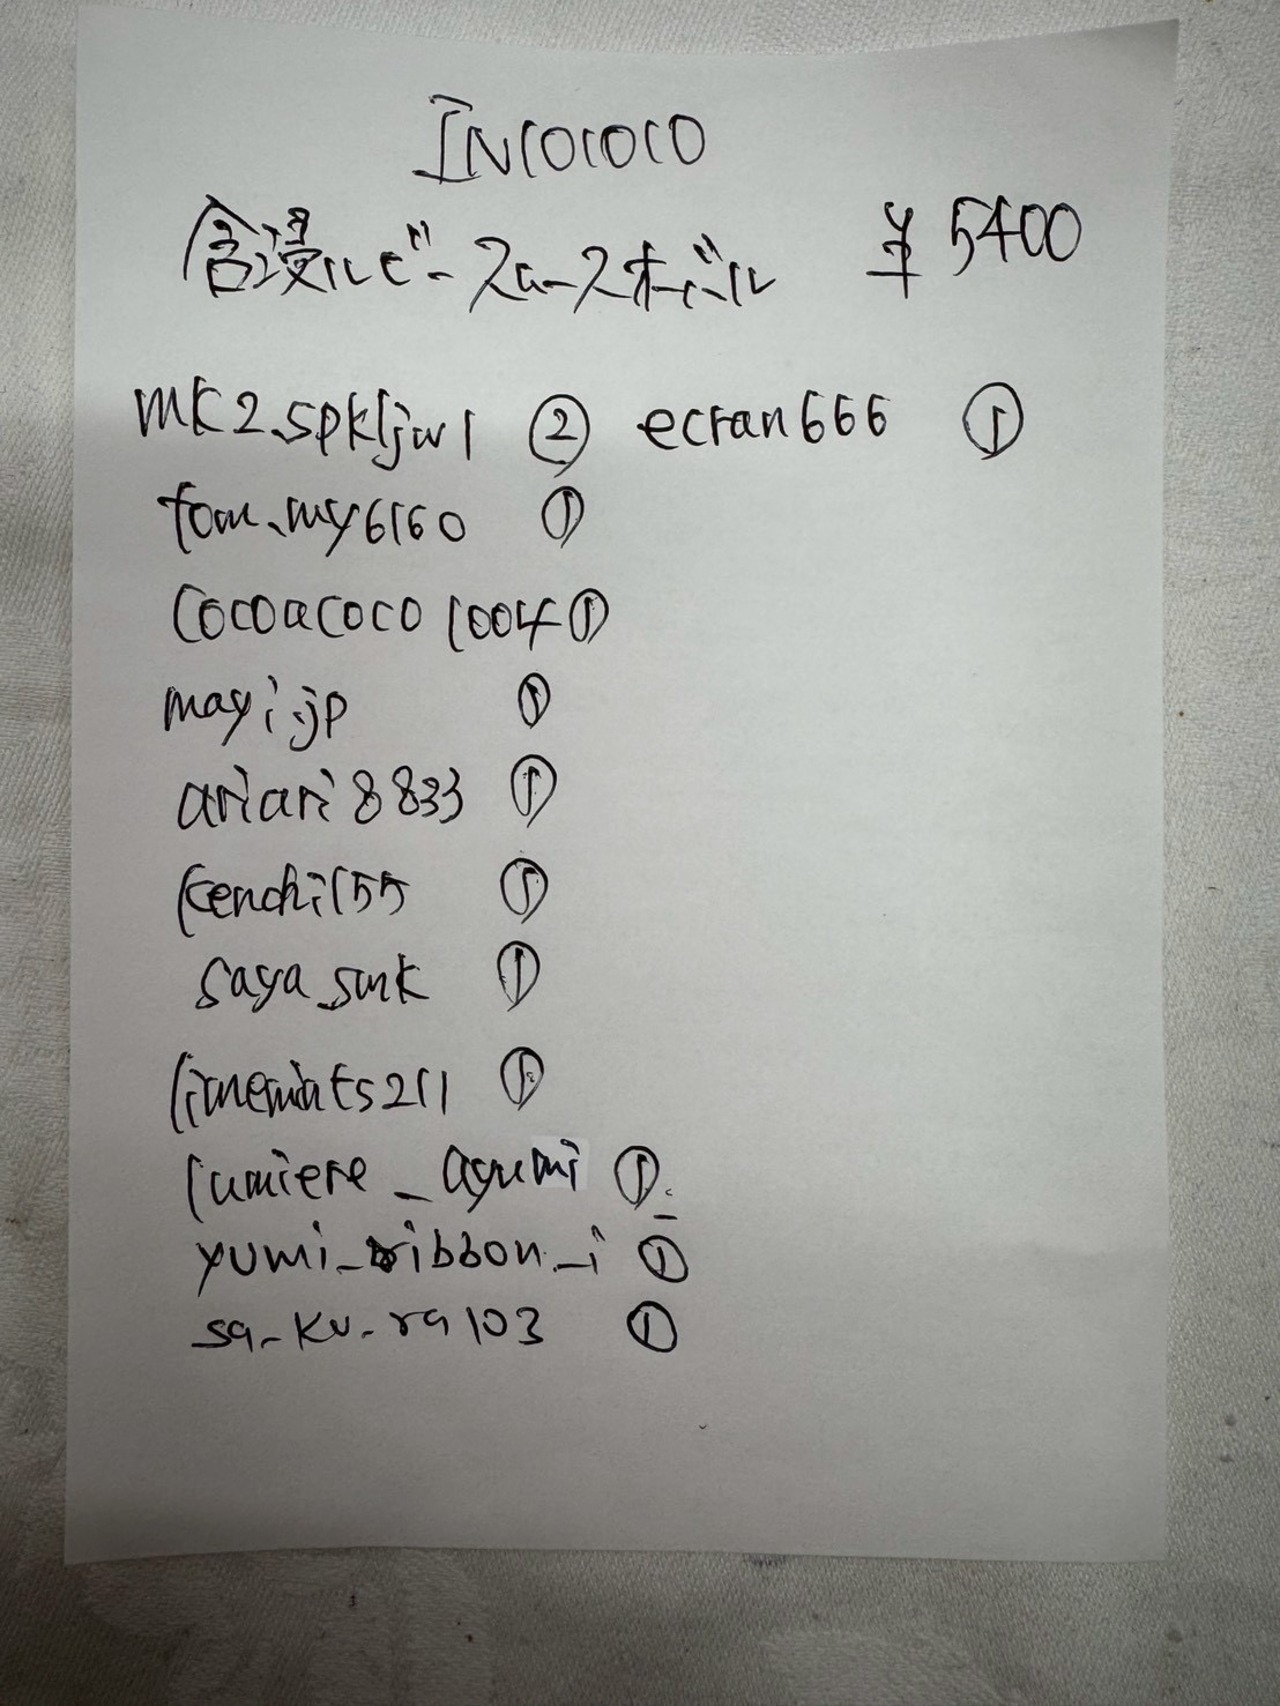 INCOCOCO
含浸ルビースムースオーバル ¥5400
mk2.spkljw1 ② ecran666 ①
tom.my6160 ①
cocoacoco1004 ①
mayi.jp ①
ariari8833 ①
kenchi155 ①
saya_smk ①
limemints211 ①
lumiere_ayumi ①
yumi_ribbon_i ①
sa_ku_ra103 ①